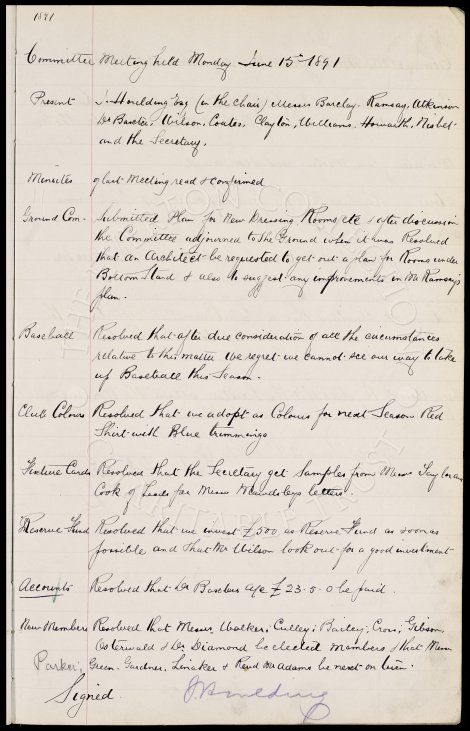 1891
Committee Meeting held Monday June 15th 1891
Present J. Houlding Esq (in the chair) Messrs Barclay, Ramsay, Atkinson
Dr Baxter, Wilson, Coates, Clayton, Williams, Howarth, Nisbet
and the Secretary.
Minutes of last Meeting read & confirmed
Ground Com. Submitted Plan for New Dressing Rooms etc & after discussion
the Committee adjourned to the Ground when it was Resolved
that an Architect be requested to get out a plan for Rooms under
Bottom Stand & also to suggest any improvements in Mr Ramsay's
plan.
Baseball Resolved that after due consideration of all the circumstances
relative to this matter we regret we cannot see our way to take
up Baseball this Season.
Club Colours Resolved that we adopt as Colours for next Season Red
Shirt with Blue trimmings
Fixture Cards Resolved that the Secretary get Samples from Messrs Taylor and
Cook of Leeds per Messrs Mawdsleys letters.
Reserve Fund Resolved that we invest £500 as Reserve Fund as soon as
possible and that Mr Wilson look out for a good investment
Accounts Resolved that Dr Baxters a/c £23.5.0 be paid.
New Members Resolved that Messrs Walker, Culley, Bailey, Cross, Gibson,
Osterwald & Dr Diamond be elected members & that Messrs
Parker, Green, Gardner, Linaker & Revd Mr Adams be next on turn.
Signed. J Houlding